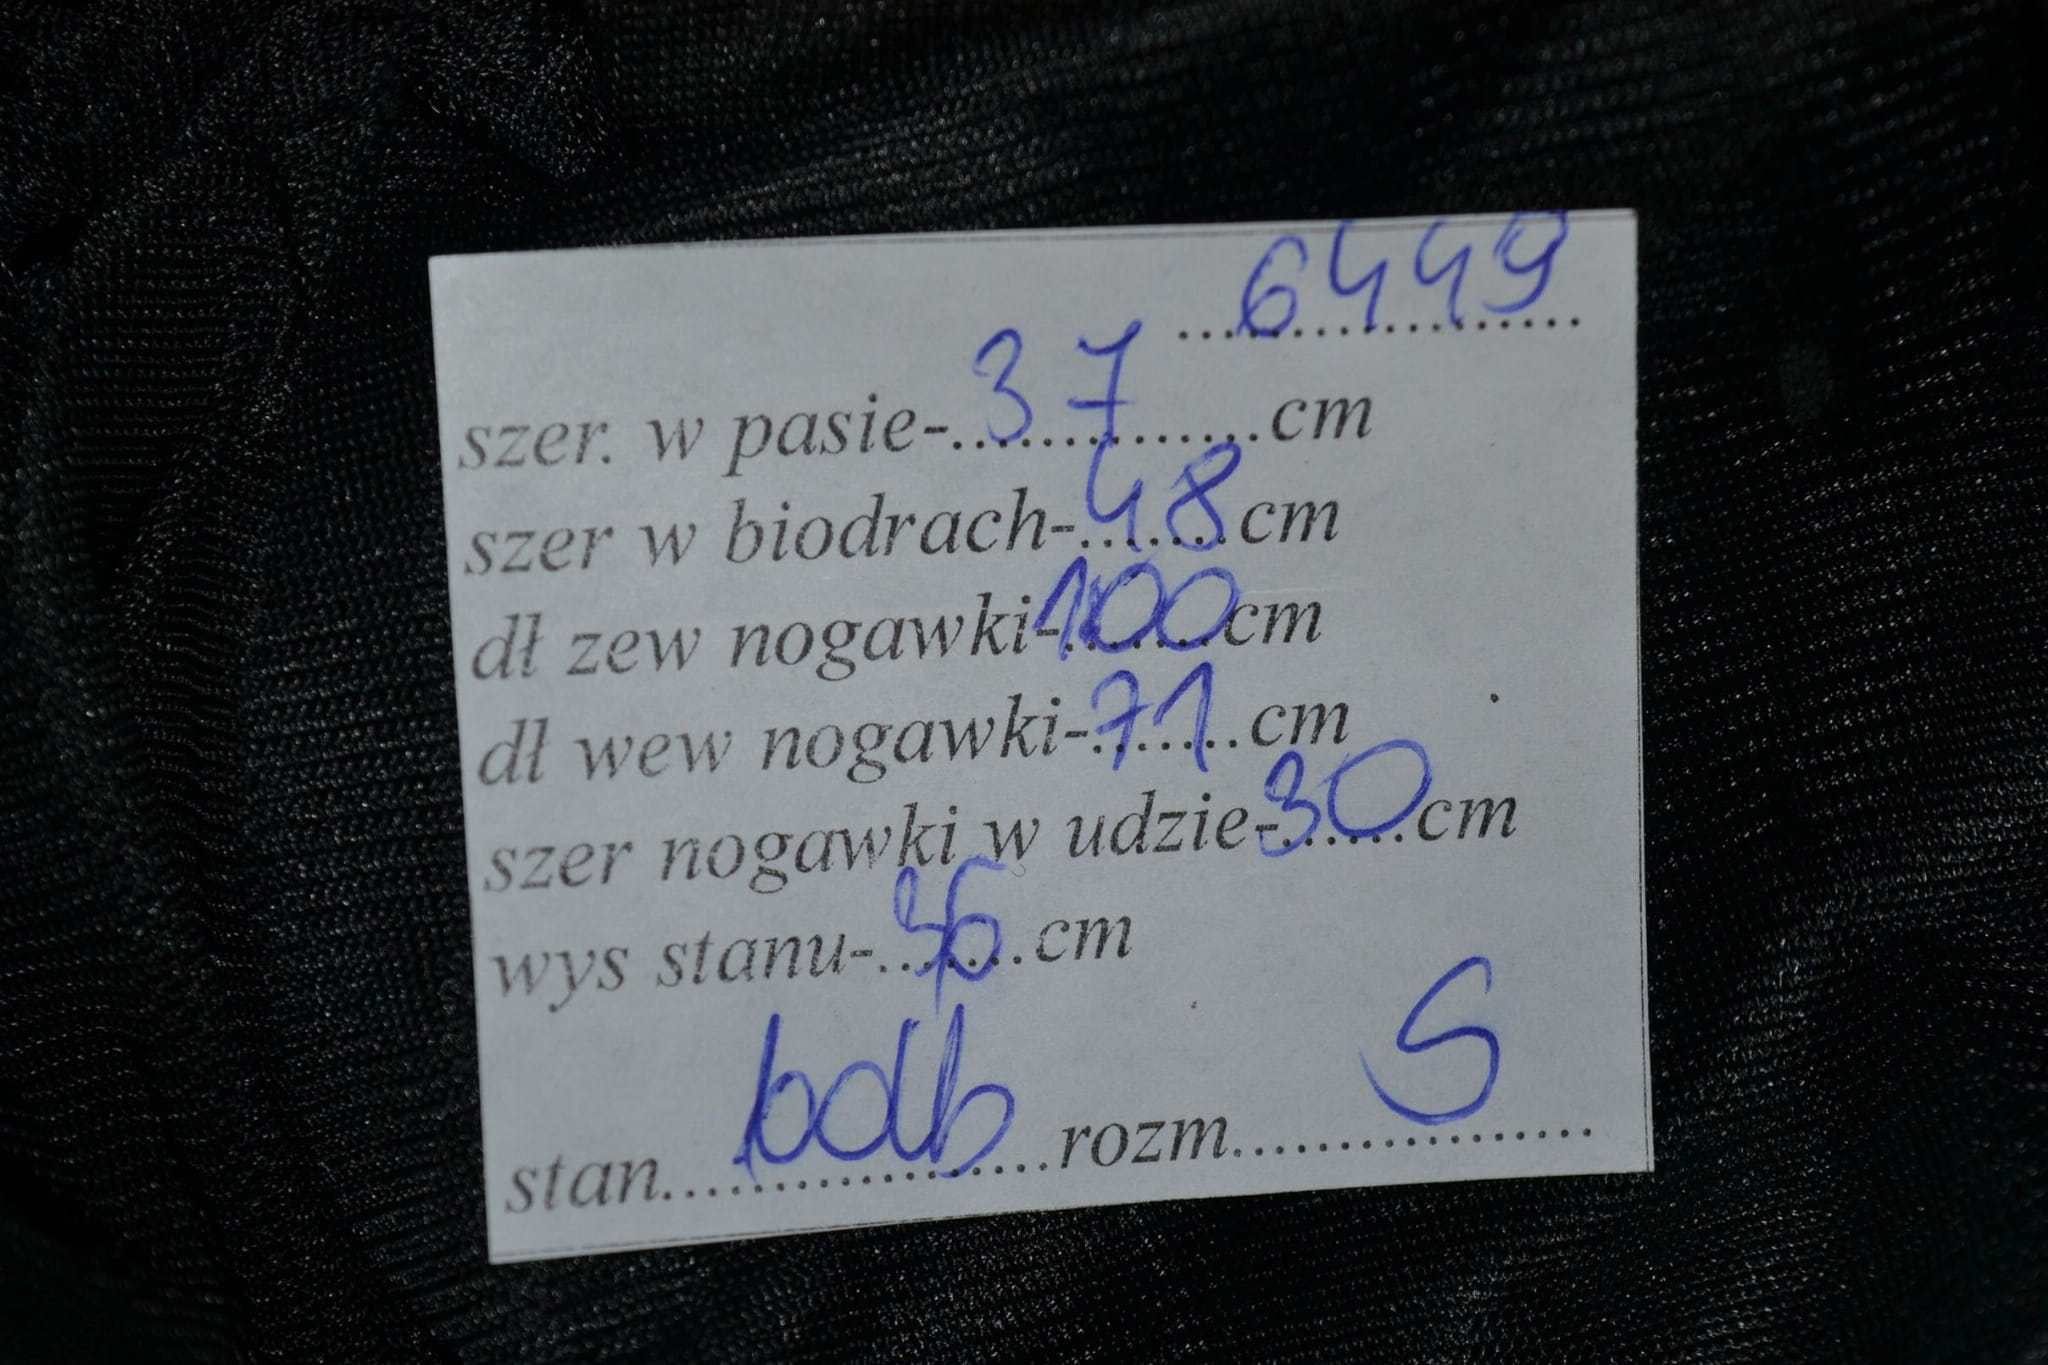 6449
szer. w pasie-37cm
szer w biodrach-48cm
dł zew nogawki-100cm
dł wew nogawki-71cm
szer nogawki w udzie-30cm
wys stanu-36cm
stan bdb rozm S